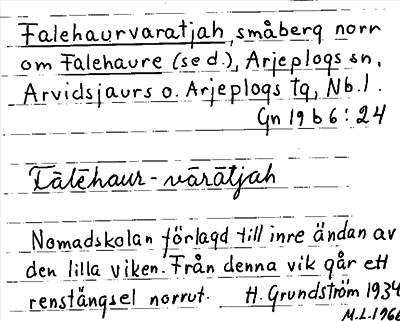 Falehaurvaratjah, småberg norr
om Falehaure (se d.), Arjeplogs sn,
Arvidsjaurs o. Arjeplogs tg, Nb.l.
Gn 19 b 6 : 24
Fālēhaur-vārātjah
Nomadskolan förlagd till inre ändan av
den lilla viken. Från denna vik går ett
renstängsel norrut. H. Grundström 1934
M.L. 1966